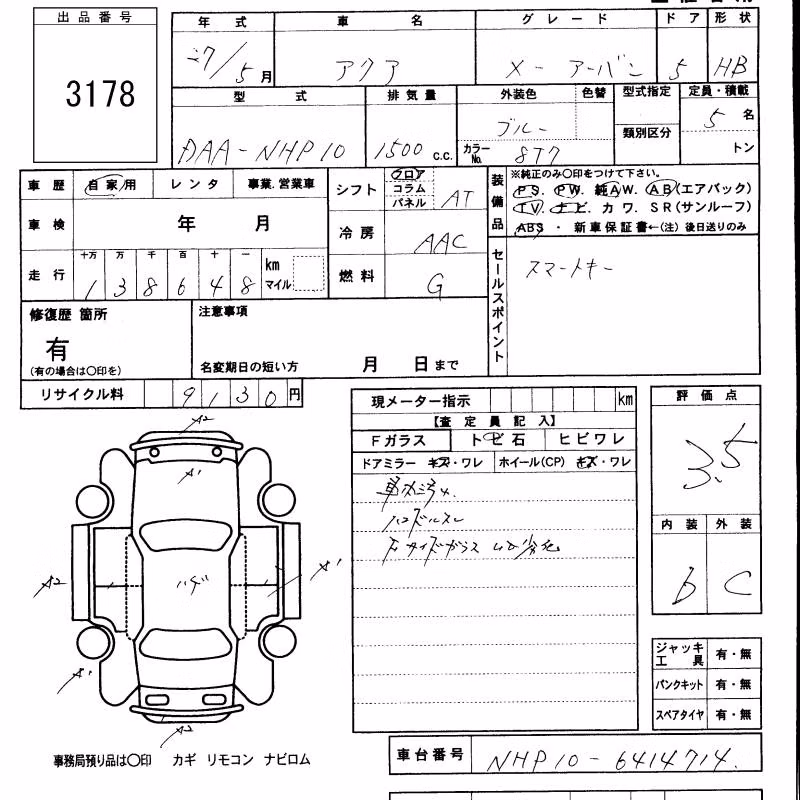 出品番号
3178
年式 車名 グレード ドア 形状
27/5月 アクア X-アーバン 5 HB
型式 排気量 外装色 色替 型式指定 定員・積載
DAA-NHP10 1500 c.c. ブルー 5名
カラーNo. 8T7 類別区分 トン
車歴 自家用 レンタ 事業.営業車
車検 年 月
走行 十万 万 千 百 十 一
138648 km マイル
シフト フロア コラム パネル AT
冷房 AAC
燃料 G
装備品
※純正のみ〇印をつけて下さい。
PS. PW. 純AW. AB(エアバック)
TV. ナビ. カワ. SR(サンルーフ)
ABS ・ 新車保証書←(注)後日送りのみ
セールスポイント
スマートキー
修復歴 箇所
有
(有の場合は〇印を)
注意事項
名変期日の短い方 月 日まで
リサイクル料 9130円
現メーター指示 km
【査定員記入】
Fガラス トビ石 ヒビワレ
ドアミラー キズ・ワレ ホイール(CP) キズ・ワレ
ハンドルスレ
評価点
3.5
内装 外装
b C
A2
A1
A2
ハゲ
A1
A1
A2
ジャッキ工具 有・無
パンクキット 有・無
スペアタイヤ 有・無
事務局預り品は〇印 カギ リモコン ナビロム
車台番号 NHP10-6414714.